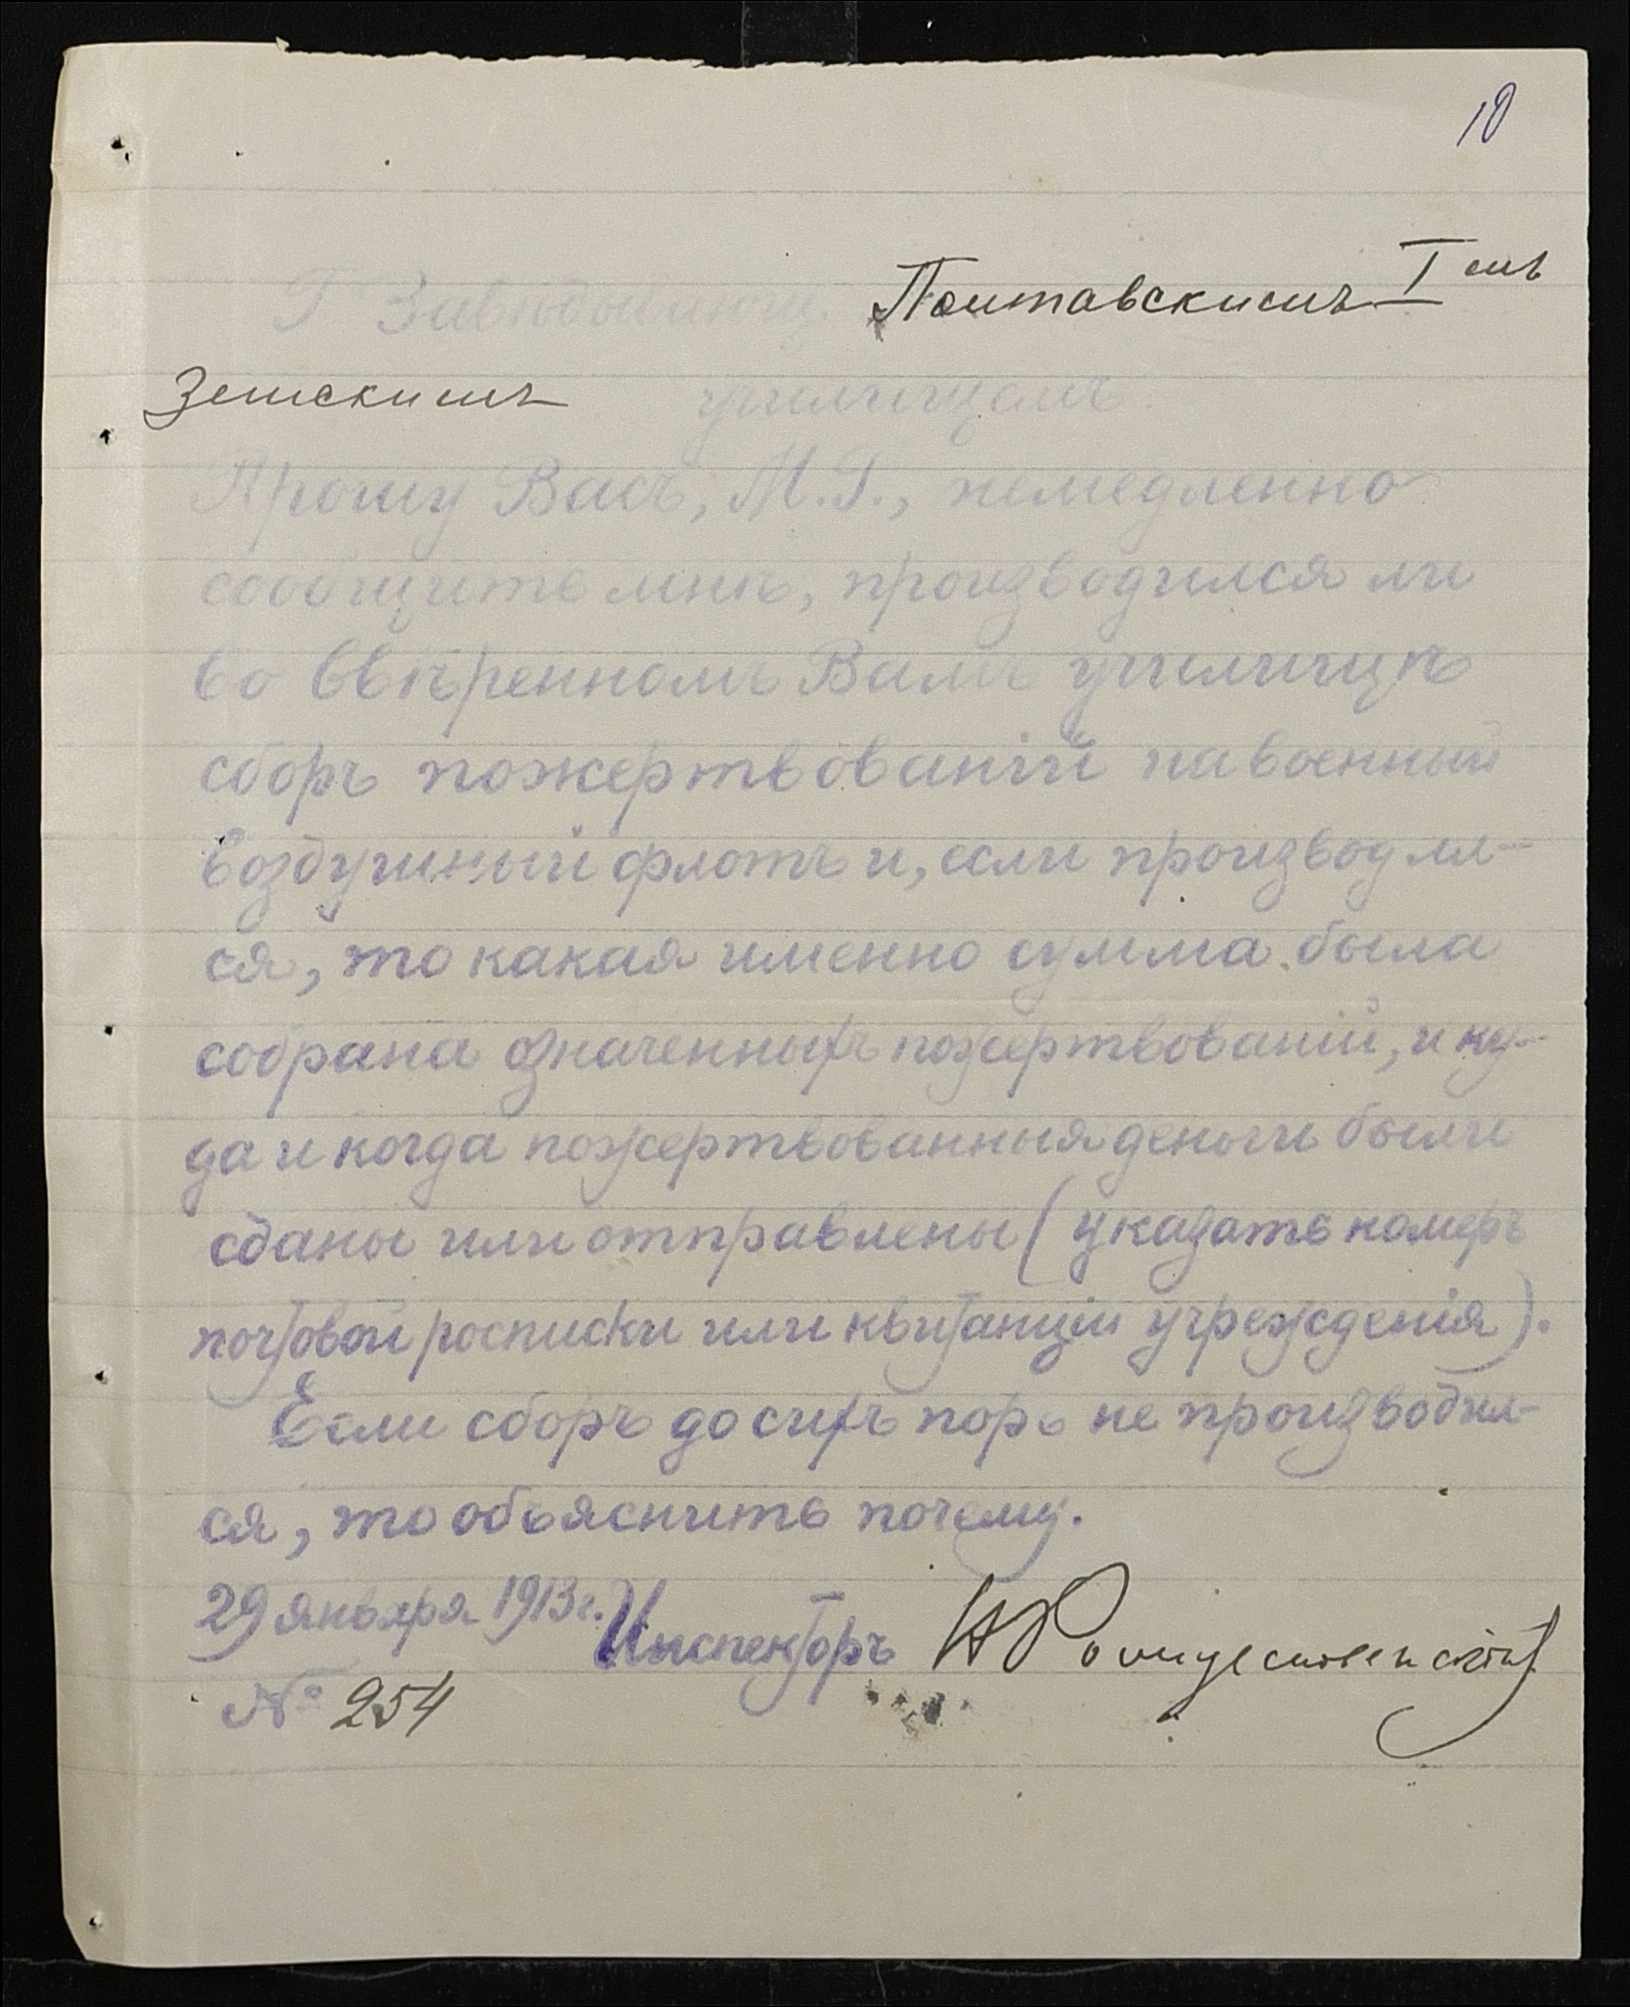 10
Г. Завѣдывающ. Полтавскимъ I имъ
Земскимъ училищемъ.
Прошу Васъ, М.Г., немедленно
сообщить мнѣ, производился ли
во ввѣренномъ Вамъ училищѣ
сборъ пожертвованій на военный
воздушный флотъ и, если производил-
ся, то какая именно сумма была
собрана означенныхъ пожертвованій, и ку-
да и когда пожертвованныя деньги были
сданы или отправлены (указать номеръ
почтовой росписки или квитанціи учрежденія).
Если сборъ до сихъ поръ не производил-
ся, то объяснить почему.
29 января 1913 г. Инспекторъ Н Рождественскій
№ 254